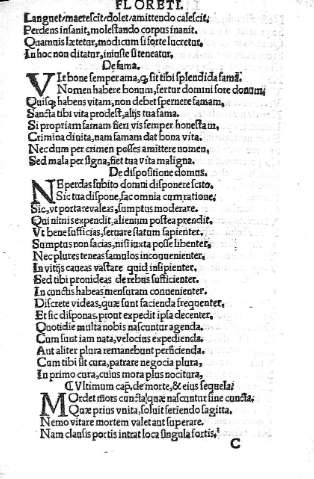 FLORETI.
Languet, maerescit, dolet, amittendo calescit,
Perdens insanit, molestando corpus inanit.
Quamuis lætetur, modicum si forte lucretur,
In hoc non ditatur, iniuste si teneatur.
De fama.
Vt bene semper ama, sit tibi splendida fama.
Nomen habere bonum, fertur domini fore donum,
Quisq; habens vitam, non debet spernere famam,
Sancta tibi vita prodest, alijs tua fama.
Si propriam famam fieri vis semper honestam,
Crimina diuita, nam famam dat bona vita.
Nec dum per crimen posses amittere nomen,
Sed mala per signa, fiet tua vita maligna.
De dispositione domus.
NE perdas subito domum disponere scito,
Sic tua dispone, fac omnia cum ratione,
Sic, vt portare valeas, sumptus moderare.
Qui nimis expendit, alienum postea prendit.
Vt bene sufficias, seruare statum sapienter.
Sumptus non facias, nisi iuxta posse libenter,
Nec plures teneas famulos inconuenienter.
In vitijs caueas vastare quid insipienter.
Sed tibi prouideas de rebus sufficienter.
In cunctis habeas mensuram conuenienter.
Discrete videas, quæ sunt facienda frequenter,
Et sic disponas, prout expedit ipsa decenter,
Quotidie multa nobis nascuntur agenda.
Cum sunt iam nata, velocius expedienda.
Aut aliter plura remanebunt perficienda.
Cum tibi sit cura, patrare negocia plura,
In primo cura, cuius mora plus nocitura,
¶ Vltimum cap. de morte, & eius sequela:
MOrdet mors cuncta, quæ nascuntur sine cuncta,
Quæ prius vnita, soluit feriendo sagitta.
Nemo vitare mortem valet aut superare.
Nam clausis portis intrat loca singula fortis,
C